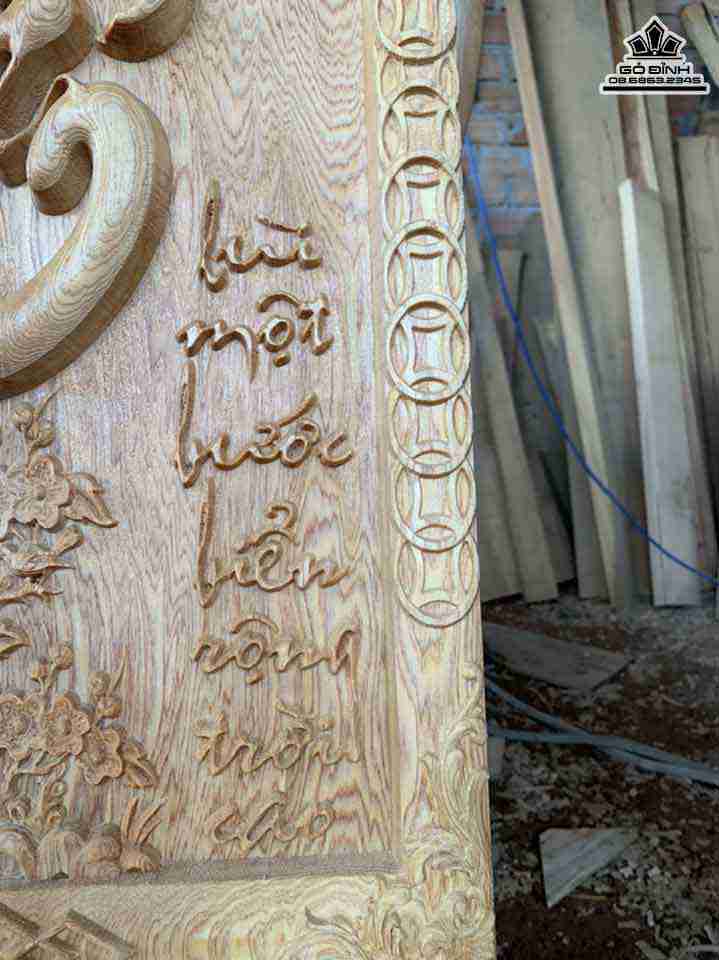 GỖ ĐỈNH
08.6863.2345
lùi
một
bước
biển
rộng
trời
cao